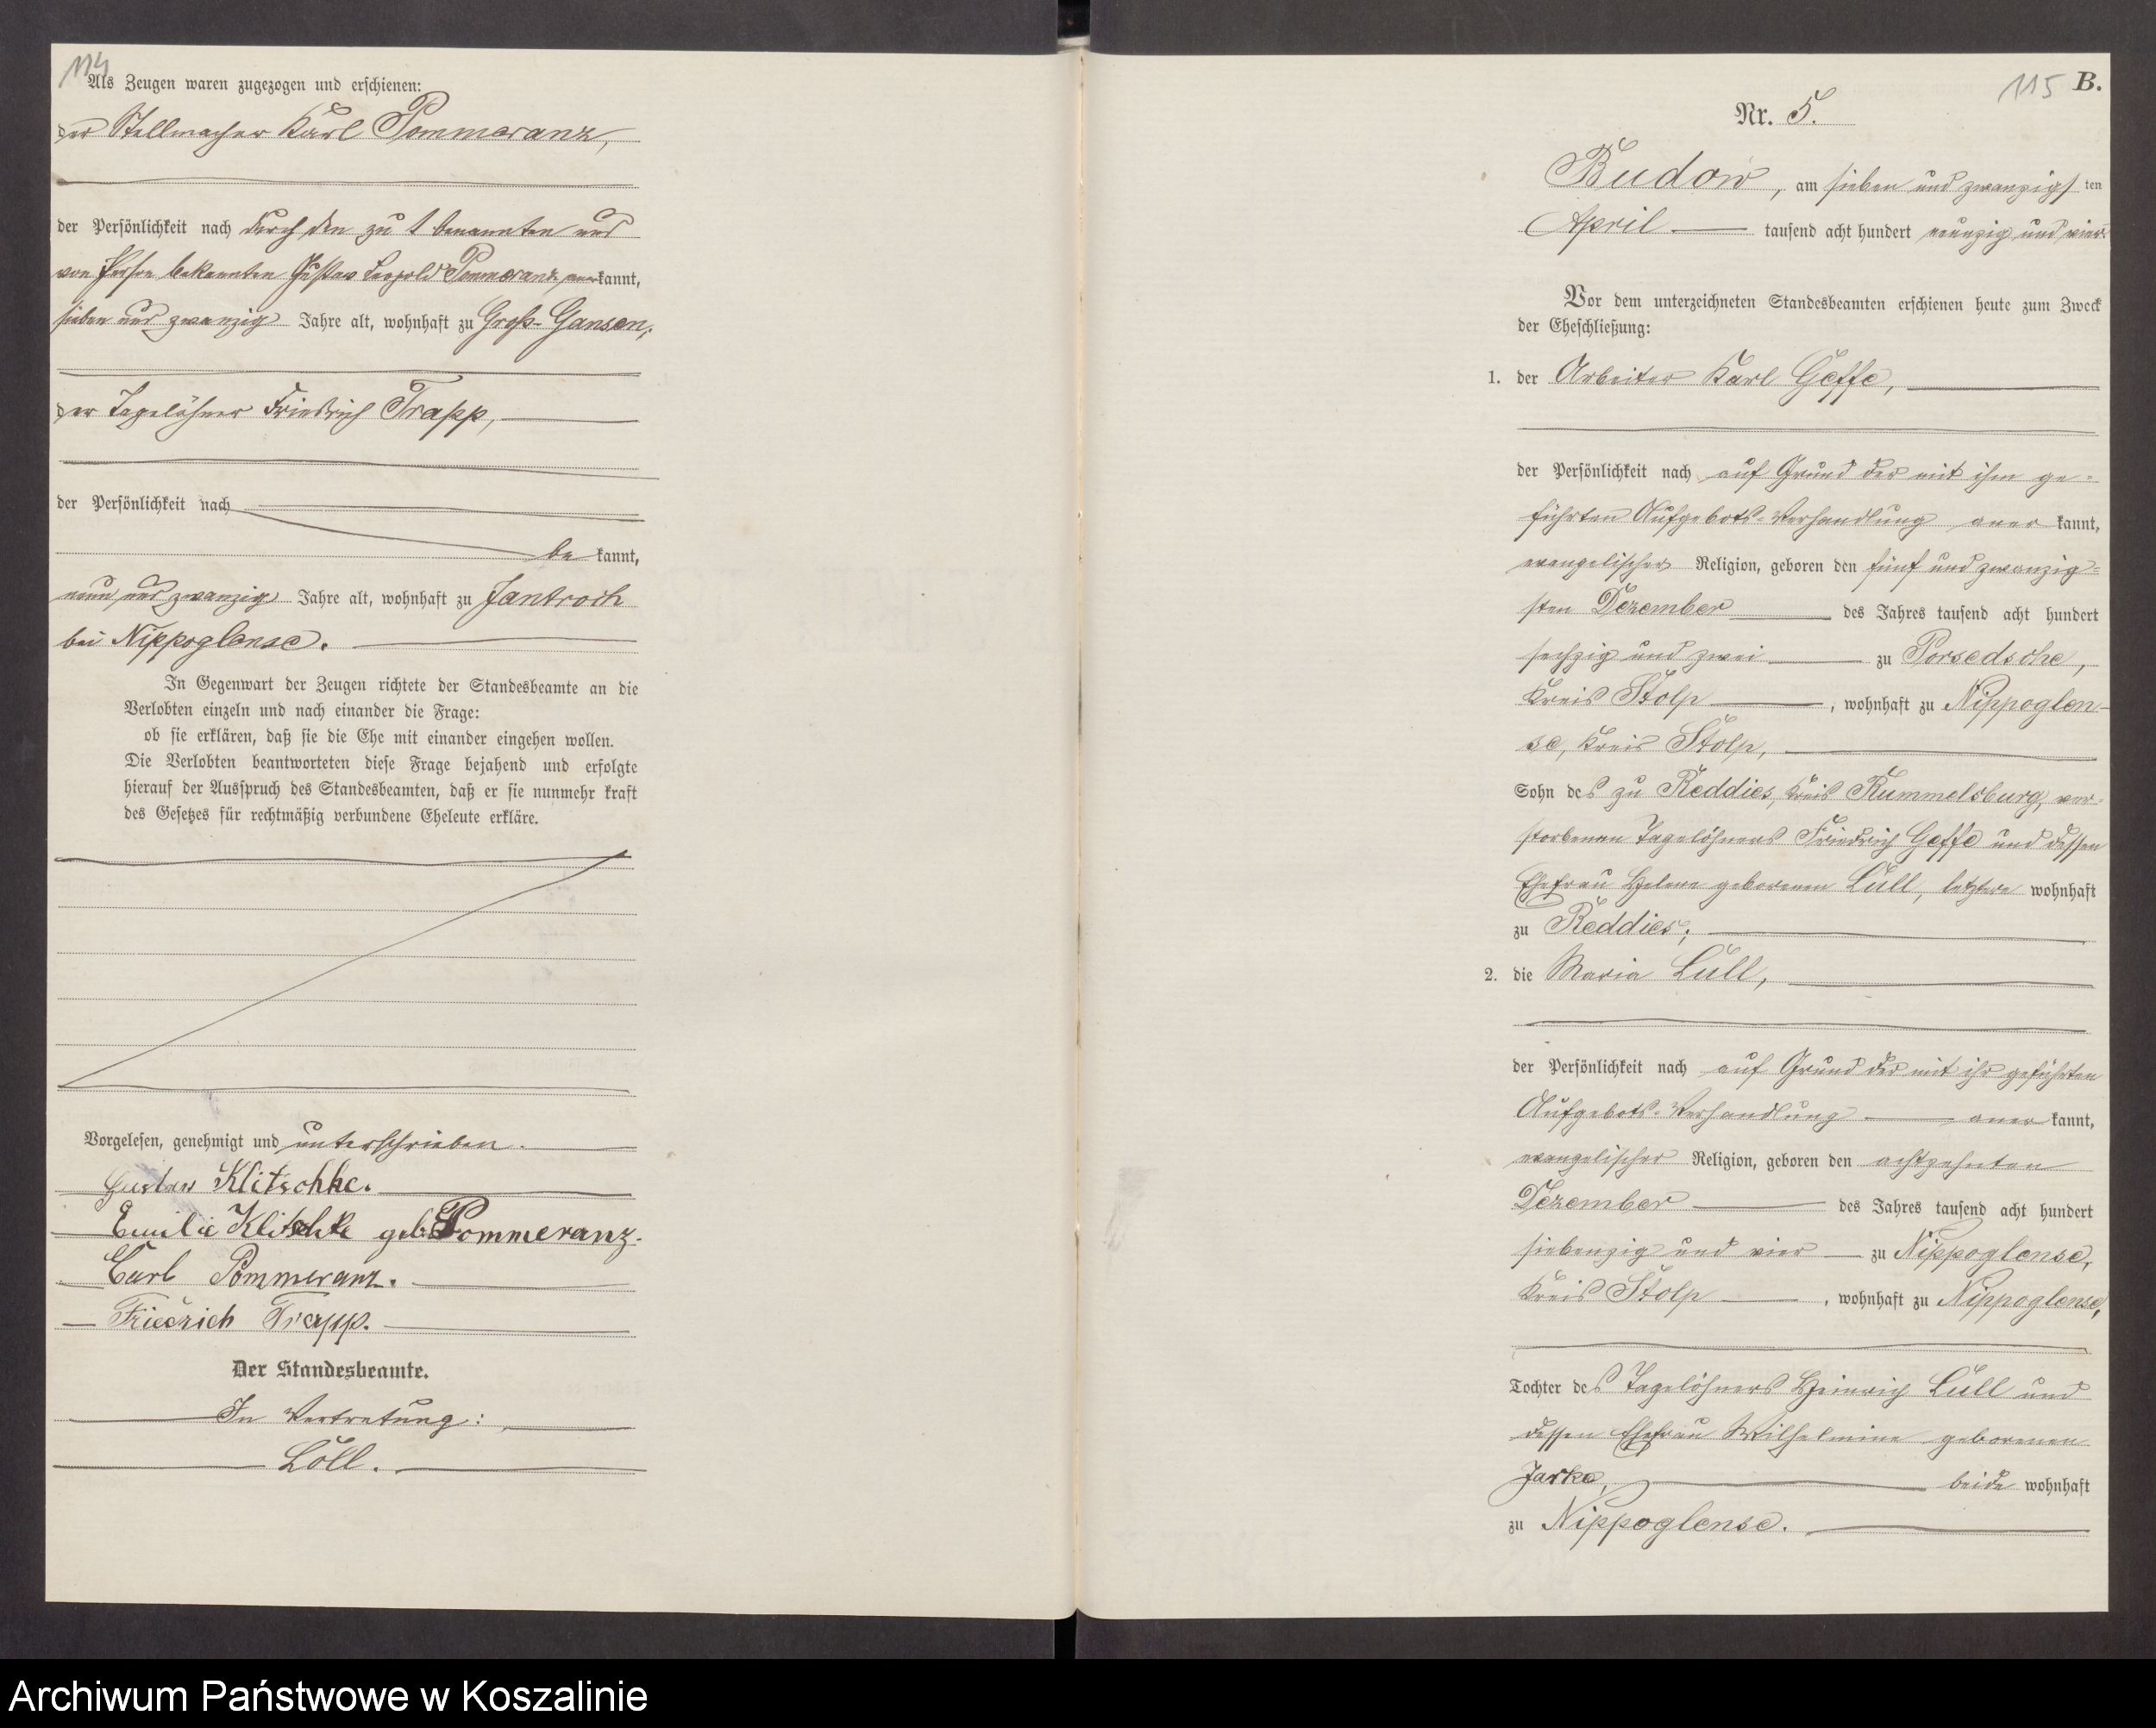 114
Als Zeugen waren zugezogen und erschienen:
der Stellmacher Karl Pommeranz,
der Persönlichkeit nach durch den zu 1 benannten und
von Person bekannten Gustav Leopold Pommeranz anerkannt,
sieben und zwanzig Jahre alt, wohnhaft zu Groß-Gansen,
der Tagelöhner Friedrich Trapp,
der Persönlichkeit nach
be kannt,
neun und zwanzig Jahre alt, wohnhaft zu Jantroch
bei Nippoglense.
In Gegenwart der Zeugen richtete der Standesbeamte an die
Verlobten einzeln und nach einander die Frage:
ob sie erklären, daß sie die Ehe mit einander eingehen wollen.
Die Verlobten beantworteten diese Frage bejahend und erfolgte
hierauf der Ausspruch des Standesbeamten, daß er sie nunmehr kraft
des Gesetzes für rechtmäßig verbundene Eheleute erkläre.
Vorgelesen, genehmigt und unterschrieben.
Gustav Klitschke.
Emilie Klitschke geb. Pommeranz.
Carl Pommeranz.
Friedrich Trapp.
Der Standesbeamte.
In Vertretung:
Löll.
115 B.
Nr. 5.
Budow, am sieben und zwanzigsten
April tausend acht hundert neunzig und vier
Vor dem unterzeichneten Standesbeamten erschienen heute zum Zweck
der Eheschließung:
1. der Arbeiter Karl Geffe,
der Persönlichkeit nach auf Grund der mit ihm ge-
führten Aufgebots-Verhandlung aner kannt,
evangelischer Religion, geboren den fünf und zwanzig-
sten Dezember des Jahres tausend acht hundert
sechzig und zwei zu Porsedsche,
Kreis Stolp, wohnhaft zu Nippoglen-
se, Kreis Stolp,
Sohn des zu Reddies, Kreis Rummelsburg, ver-
storbenen Tagelöhners Friedrich Geffe und dessen
Ehefrau Helene geborenen Lüll, letztere wohnhaft
zu Reddies;
2. die Maria Lüll,
der Persönlichkeit nach auf Grund der mit ihr geführten
Aufgebots-Verhandlung aner kannt,
evangelischer Religion, geboren den achtzehnten
Dezember des Jahres tausend acht hundert
siebenzig und vier zu Nippoglense,
Kreis Stolp, wohnhaft zu Nippoglense,
Tochter des Tagelöhners Heinrich Lüll und
dessen Ehefrau Wilhelmine geborenen
Jarke, beide wohnhaft
zu Nippoglense.
Archiwum Państwowe w Koszalinie